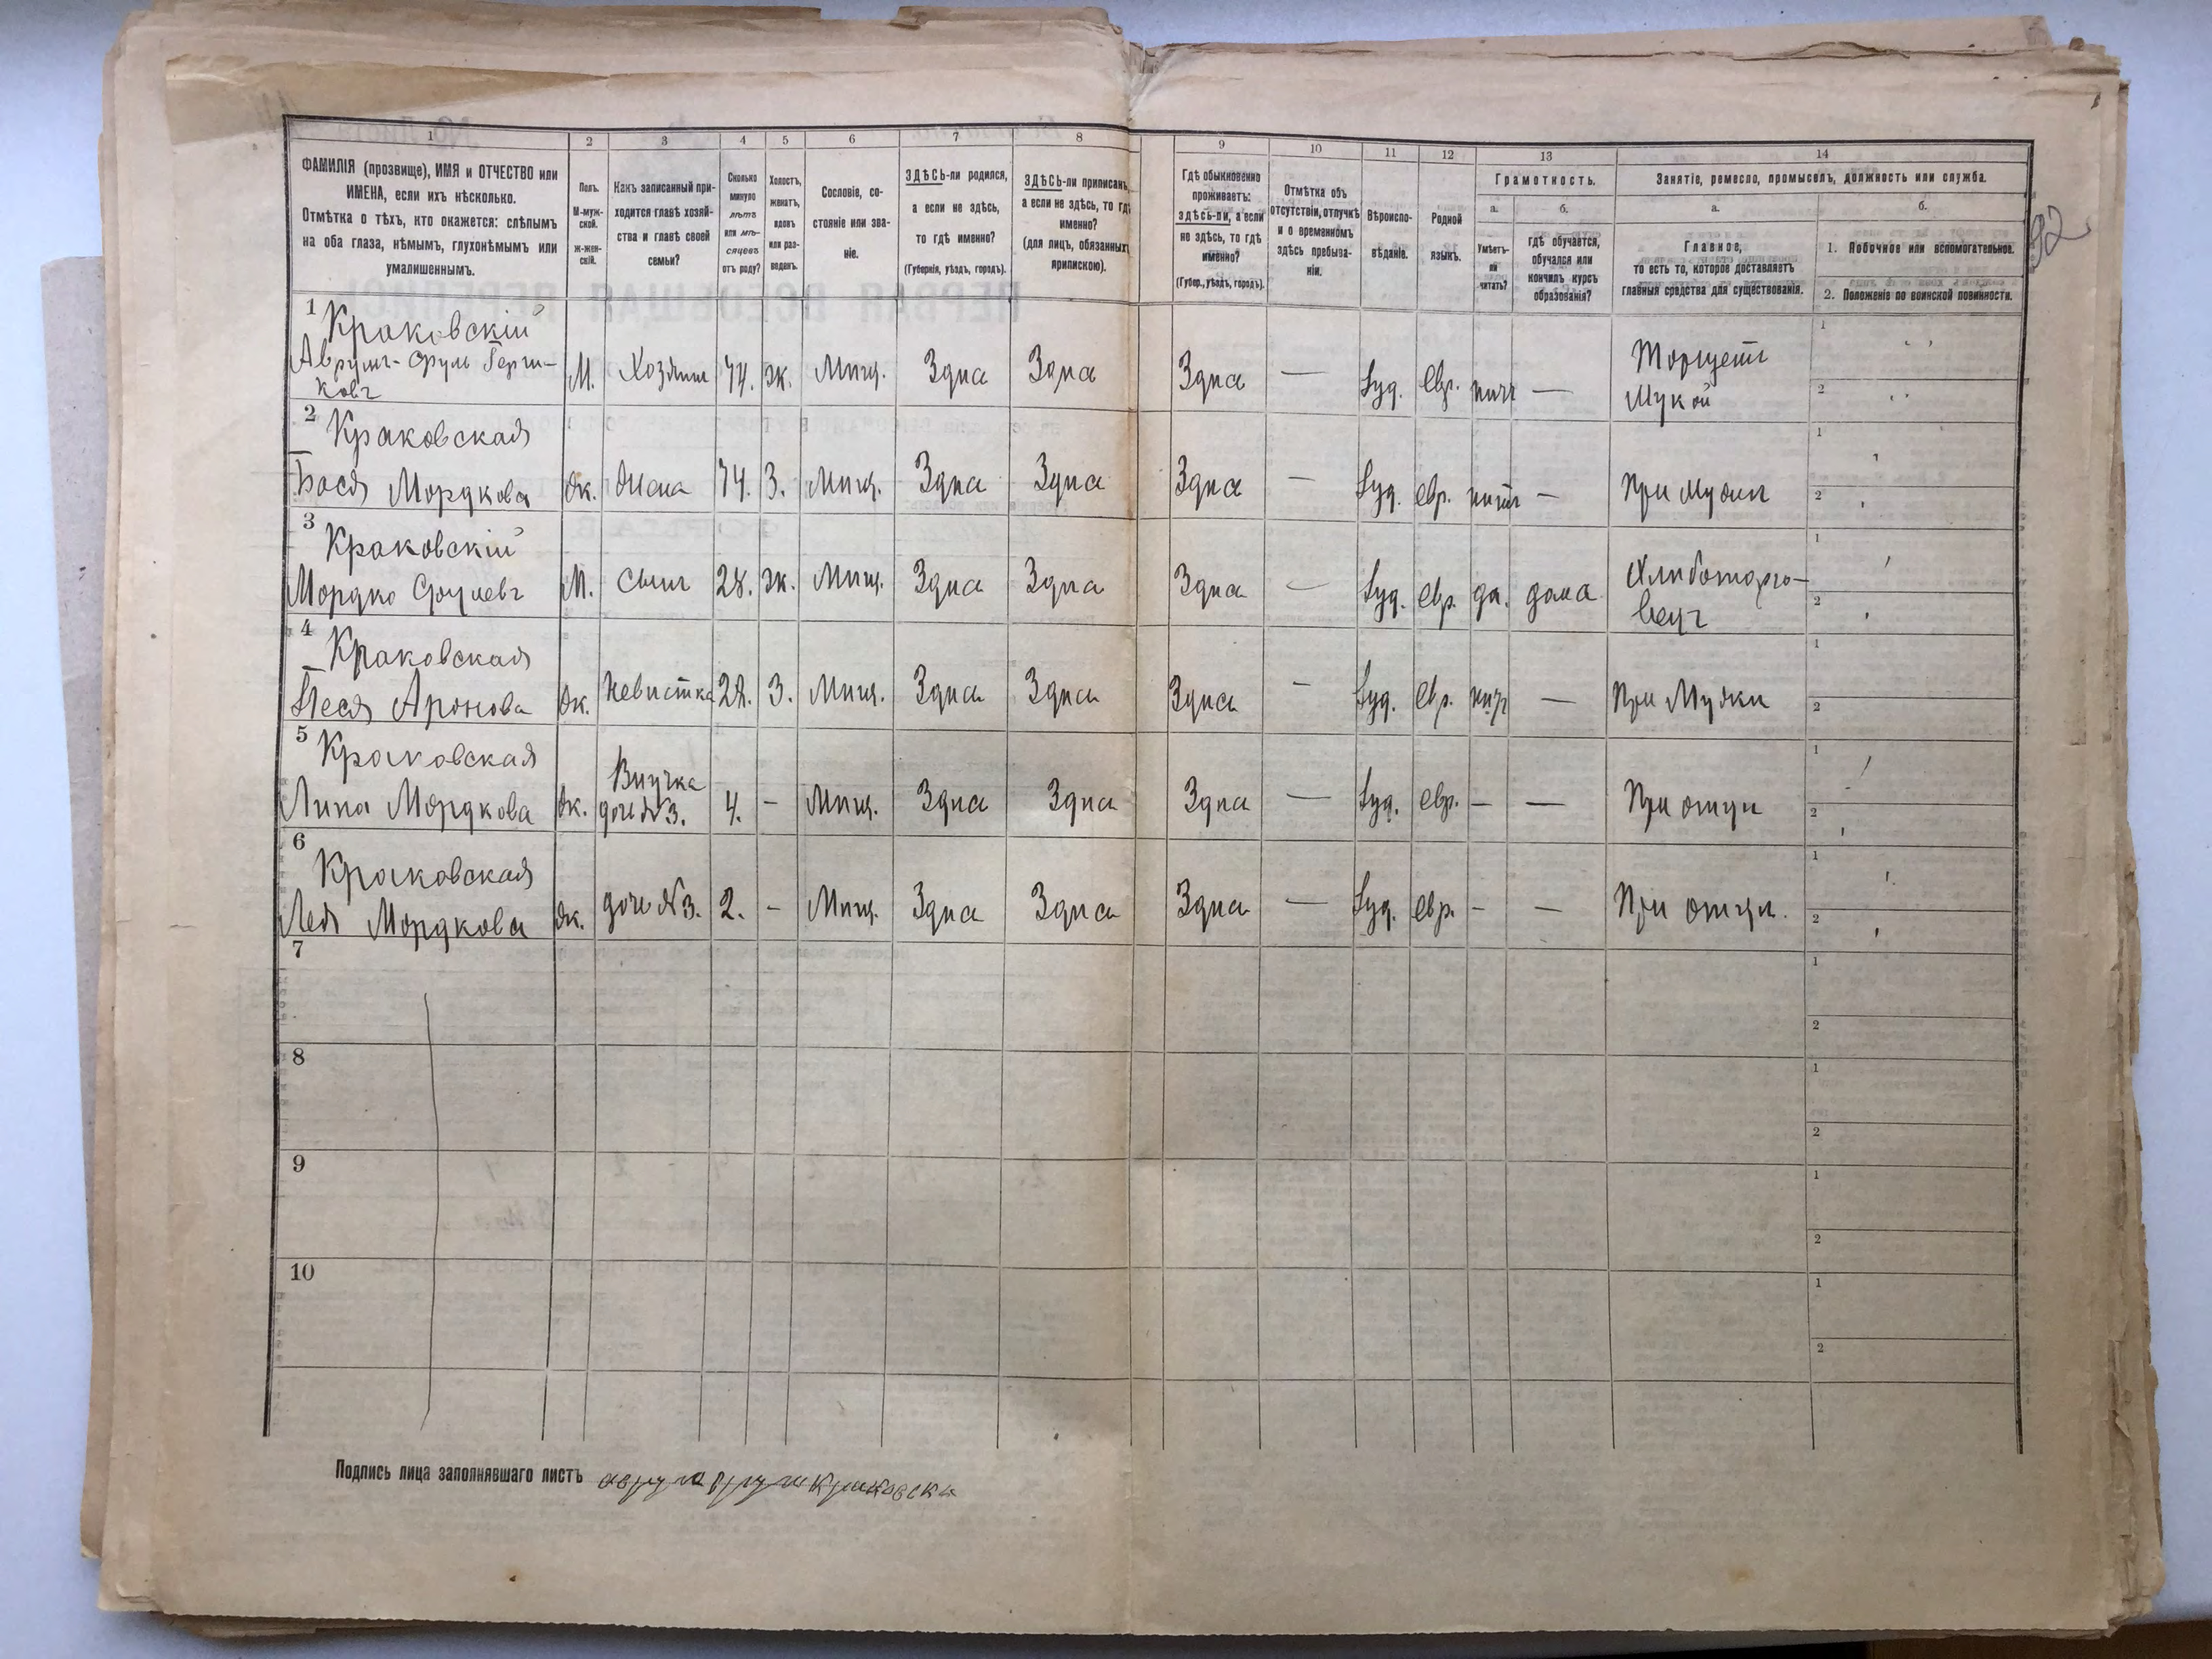 1 2 3 4 5 6 7 8 9 10 11 12 13 14
ФАМИЛІЯ (прозвище), ИМЯ и ОТЧЕСТВО или
ИМЕНА, если ихъ нѣсколько.
Отмѣтка о тѣхъ, кто окажется: слѣпымъ
на оба глаза, нѣмымъ, глухонѣмымъ или
умалишеннымъ.
Полъ.
М-муж-
ской.
ж-жен-
скій.
Какъ записанный при-
ходится главѣ хозяй-
ства и главѣ своей
семьи?
Сколько
минуло
лѣтъ
или мѣ-
сяцевъ
отъ роду?
Холостъ,
женатъ,
вдовъ
или раз-
веденъ.
Сословіе, со-
стояніе или зва-
ніе.
ЗДѢСЬ-ли родился,
а если не здѣсь,
то гдѣ именно?
(Губернія, уѣздъ, городъ).
ЗДѢСЬ-ли приписанъ,
а если не здѣсь, то гдѣ
именно?
(для лицъ, обязанныхъ
припискою).
Гдѣ обыкновенно
проживаетъ:
здѣсь-ли, а если
не здѣсь, то гдѣ
именно?
(Губер., уѣздъ, городъ).
Отмѣтка объ
отсутствіи, отлучкѣ
и о временномъ
здѣсь пребыва-
ніи.
Вѣроиспо-
вѣданіе.
Родной
языкъ.
Грамотность.
а.
Умѣетъ-
ли
читать?
б.
гдѣ обучается,
обучался или
кончилъ курсъ
образованія?
Занятіе, ремесло, промыселъ, должность или служба.
а.
Главное,
то есть то, которое доставляетъ
главныя средства для существованія.
б.
1. Побочное или вспомогательное.
2. Положеніе по воинской повинности.
92
1 Краковскій
Аврумъ-Сруль
ковъ М. Хозяинъ 74. Ж. Мищ. Здиа Здиа Здиа — Іуд. евр. нитъ — Торгуетъ
Мукой
1
2
2 Краковская
Бася Мордкова Ж. Жена 74. З. Мищ. Здиа Здиа Здиа — Іуд. евр. нитъ — При Мужи
1
2
3 Краковскій
Мордко Срулевъ М. Сынъ 28. Ж. Мищ. Здиа Здиа Здиа — Іуд. евр. да. дома Хлиботорго-
вецъ
1
2
4 Краковская
Песя Аронова Ж. Невистка 28. З. Мищ. Здиа Здиа Здиа — Іуд. евр. нитъ — При Мужи
1
2
5 Краковская
Лина Мордкова Ж. Внучка
дочь №3. 4. – Мищ. Здиа Здиа Здиа — Іуд. евр. – — При отци
1
2
6 Краковская
Лея Мордкова Ж. дочь №3. 2. – Мищ. Здиа Здиа Здиа — Іуд. евр. – — При отци.
1
2
7
1
2
8
1
2
9
1
2
10
1
2
Подпись лица заполнявшаго листъ аврумъ срул краковски